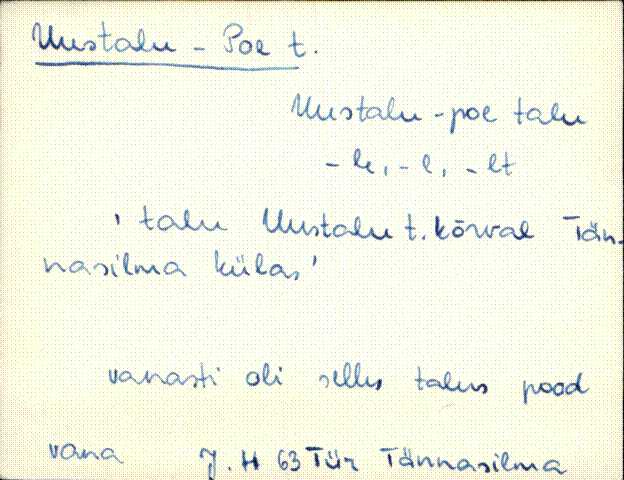 Uustalu - Poe t.
Uustalu - poe talu
- le, - l, - lt
' talu Uustalu t. kõrval Tän-
nasilma külas'
vanasti oli selles talus pood
vana J. H 63 Tür Tännasilma